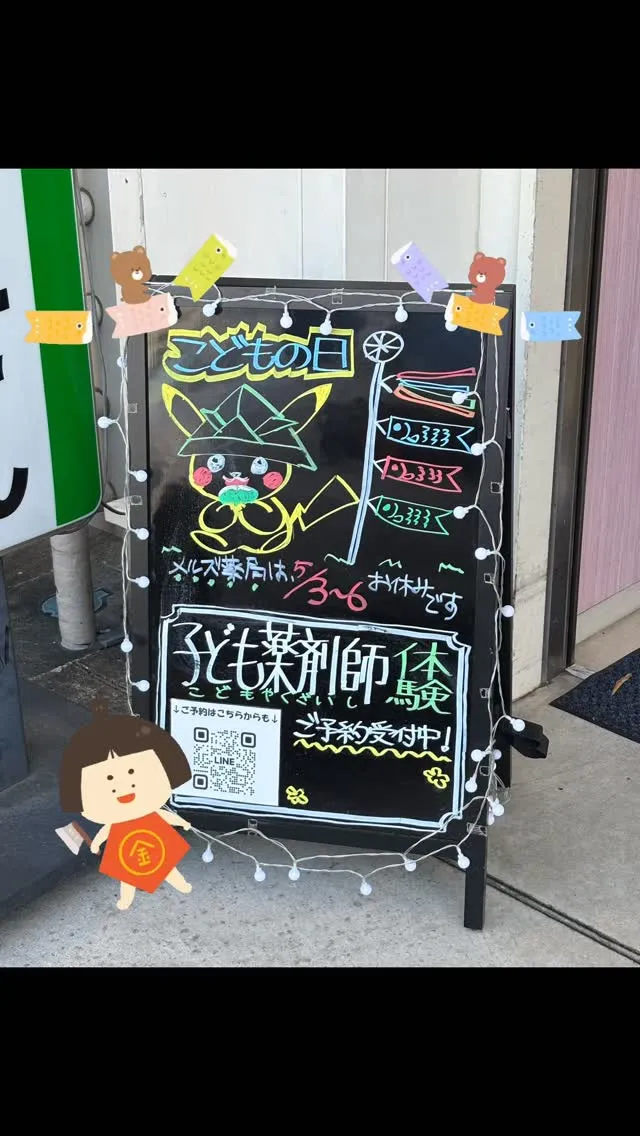 こどもの日
メルズ薬局は 5/3~6 お休みです
子ども薬剤師体験
こどもやくざいし
↓ご予約はこちらからも↓
LINE
ご予約受付中!
金